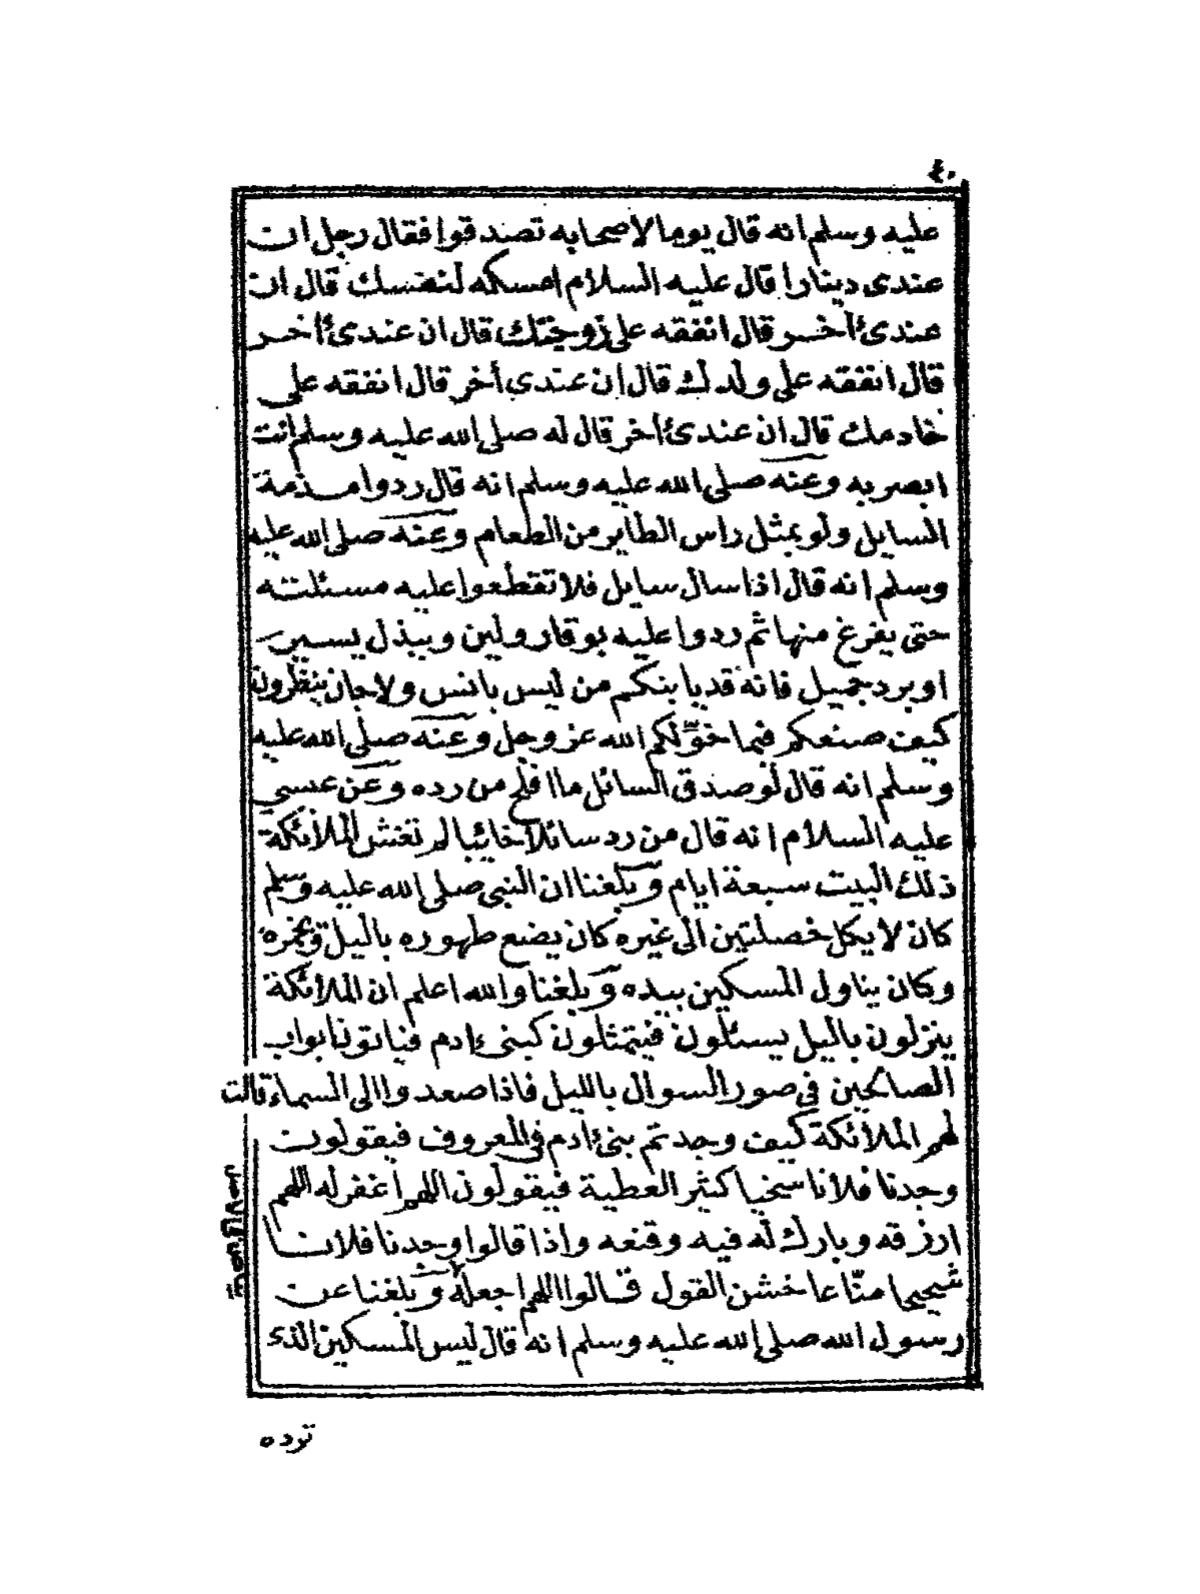 ٤٠
عليه وسلم انه قال يوما لاصحابه تصدقوا فقال رجل ان
عندي دينارا قال عليه السلام امسكه لنفسك قال ان
عندي ءاخر قال انفقه على زوجتك قال ان عندي ءاخر
قال انفقه على ولدك قال ان عندي أخر قال انفقه على
خادمك قال ان عندي ءاخر قال له صلى الله عليه وسلم انت
ابصر به وعنه صلى الله عليه وسلم انه قال ردوا مذمة
السايل ولو بمثل راس الطاير من الطعام وعنه صلى الله عليه
وسلم انه قال اذا سال سايل فلا تقطعوا عليه مسئلته
حتى يفرغ منها ثم ردوا عليه بوقار ولين وببذل يسير
او برد جميل فانه قد يا بنكم من ليس بانس ولا جان ينظرون
كيف صنعكم فيما خوّلكم الله عز وجل وعنه صلى الله عليه
وسلم انه قال لو صدق السائل ما افلح من رده وعن عيسى
عليه السلام انه قال من رد سائلا خائبا لم تغش الملائكة
ذلك البيت سبعة ايام وبلغنا ان النبي صلى الله عليه وسلم
كان لا يكل خصلتين الى غيره كان يضع طهوره بالليل ويخمره
وكان يناول المسكين بيده وبلغنا والله اعلم ان الملائكة
ينزلون بالليل يسئلون فيتمثلون كبني ءادم فياتون ابواب
الصالحين في صور السوال بالليل فاذا صعدوا الى السماء قالت
لهم الملائكة كيف وجدتم بني ءادم في المعروف فيقولون
وجدنا فلانا سخيا كثير العطية فيقولون اللهم اغفر له اللهم
ارزقه وبارك له فيه وقنعه واذا قالوا وجدنا فلانا
شحيحا منّاعا خشن القول قالوا اللهم اجعله وبلغنا عن
رسول الله صلى الله عليه وسلم انه قال ليس المسكين الذي
بياض في الاصل
ترده